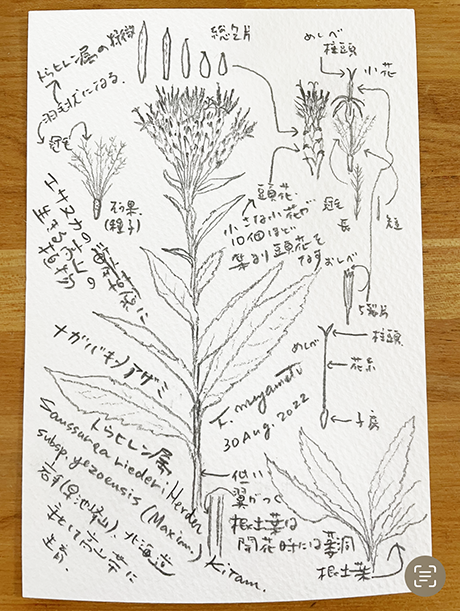 トウヒレン属の特徴
羽毛状になる。
冠毛
総苞片
めしべ
柱頭
小花
痩果
(種子)
頭花
小さな小花が
10個ほど
集まり頭花を
なす
冠毛
長
短
おしべ
5裂片
めしべ
柱頭
花糸
子房
エサヌカの海岸草原に
生える
ナガバキタアザミ
トウヒレン属
Saussurea riederi Herder
subsp. yezoensis (Maxim.)
Kitam.
岩手(早池峰山)、北海道
主として高山帯に
生育
F. miyamoto
30 Aug. 2022
低い
翼がつく
根生葉は
開花時には萎凋
根生葉